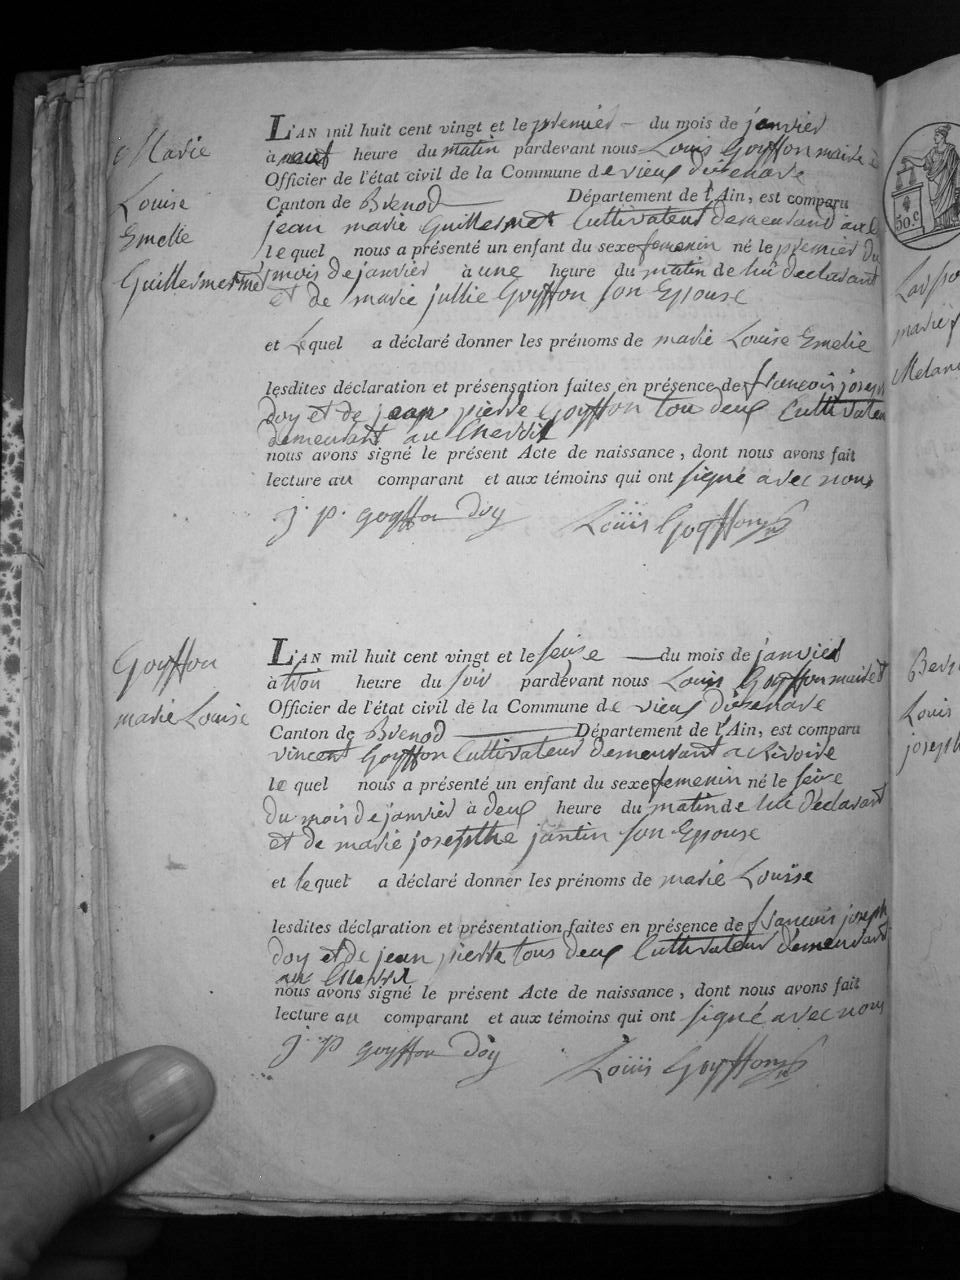 Marie
Louise
Emelie
Guillermermet
L'AN mil huit cent vingt et le premier du mois de janvier
à neuf heure du matin pardevant nous Louis Goyffon maire
Officier de l'état civil de la Commune de vieux disenave
Canton de Brenod Département de l'Ain, est comparu
jean marie Guillermet Cultivateur demeurant aux
le quel nous a présenté un enfant du sexe femenin né le premier du
mois de janvier à une heure du matin de lui declarant
et de marie jullie Goyffon son Epouse
et Lequel a déclaré donner les prénoms de marie Louise Emelie
lesdites déclaration et présensation faites en présence de francois joseph
doy et de jean pierre Goyffon tou deux Cultivateu
demeurant au
nous avons signé le présent Acte de naissance, dont nous avons fait
lecture au comparant et aux témoins qui ont signé avec nous
j. p. goyffon Doy Louis Goyffon
Goyffon
marie Louise
L'AN mil huit cent vingt et le seize du mois de janvier
à trois heure du soir pardevant nous Louis Goyffon maire et
Officier de l'état civil de la Commune de vieux disenave
Canton de Brenod Département de l'Ain, est comparu
vincent Goyffon Cultivateur demeurant a
le quel nous a présenté un enfant du sexe femenin né le seize
du mois de janvier à deux heure du matin de lui déclarant
et de marie josephte jantin son Epouse
et lequel a déclaré donner les prénoms de marie Louise
lesdites déclaration et présentation faites en présence de francois joseph
doy et de jean pierre tous deux Cultivateur demeurant
au
nous avons signé le présent Acte de naissance, dont nous avons fait
lecture au comparant et aux témoins qui ont signé avec nous
j p goyffon Doy Louis Goyffon
50.c
marie
Louis
joseph